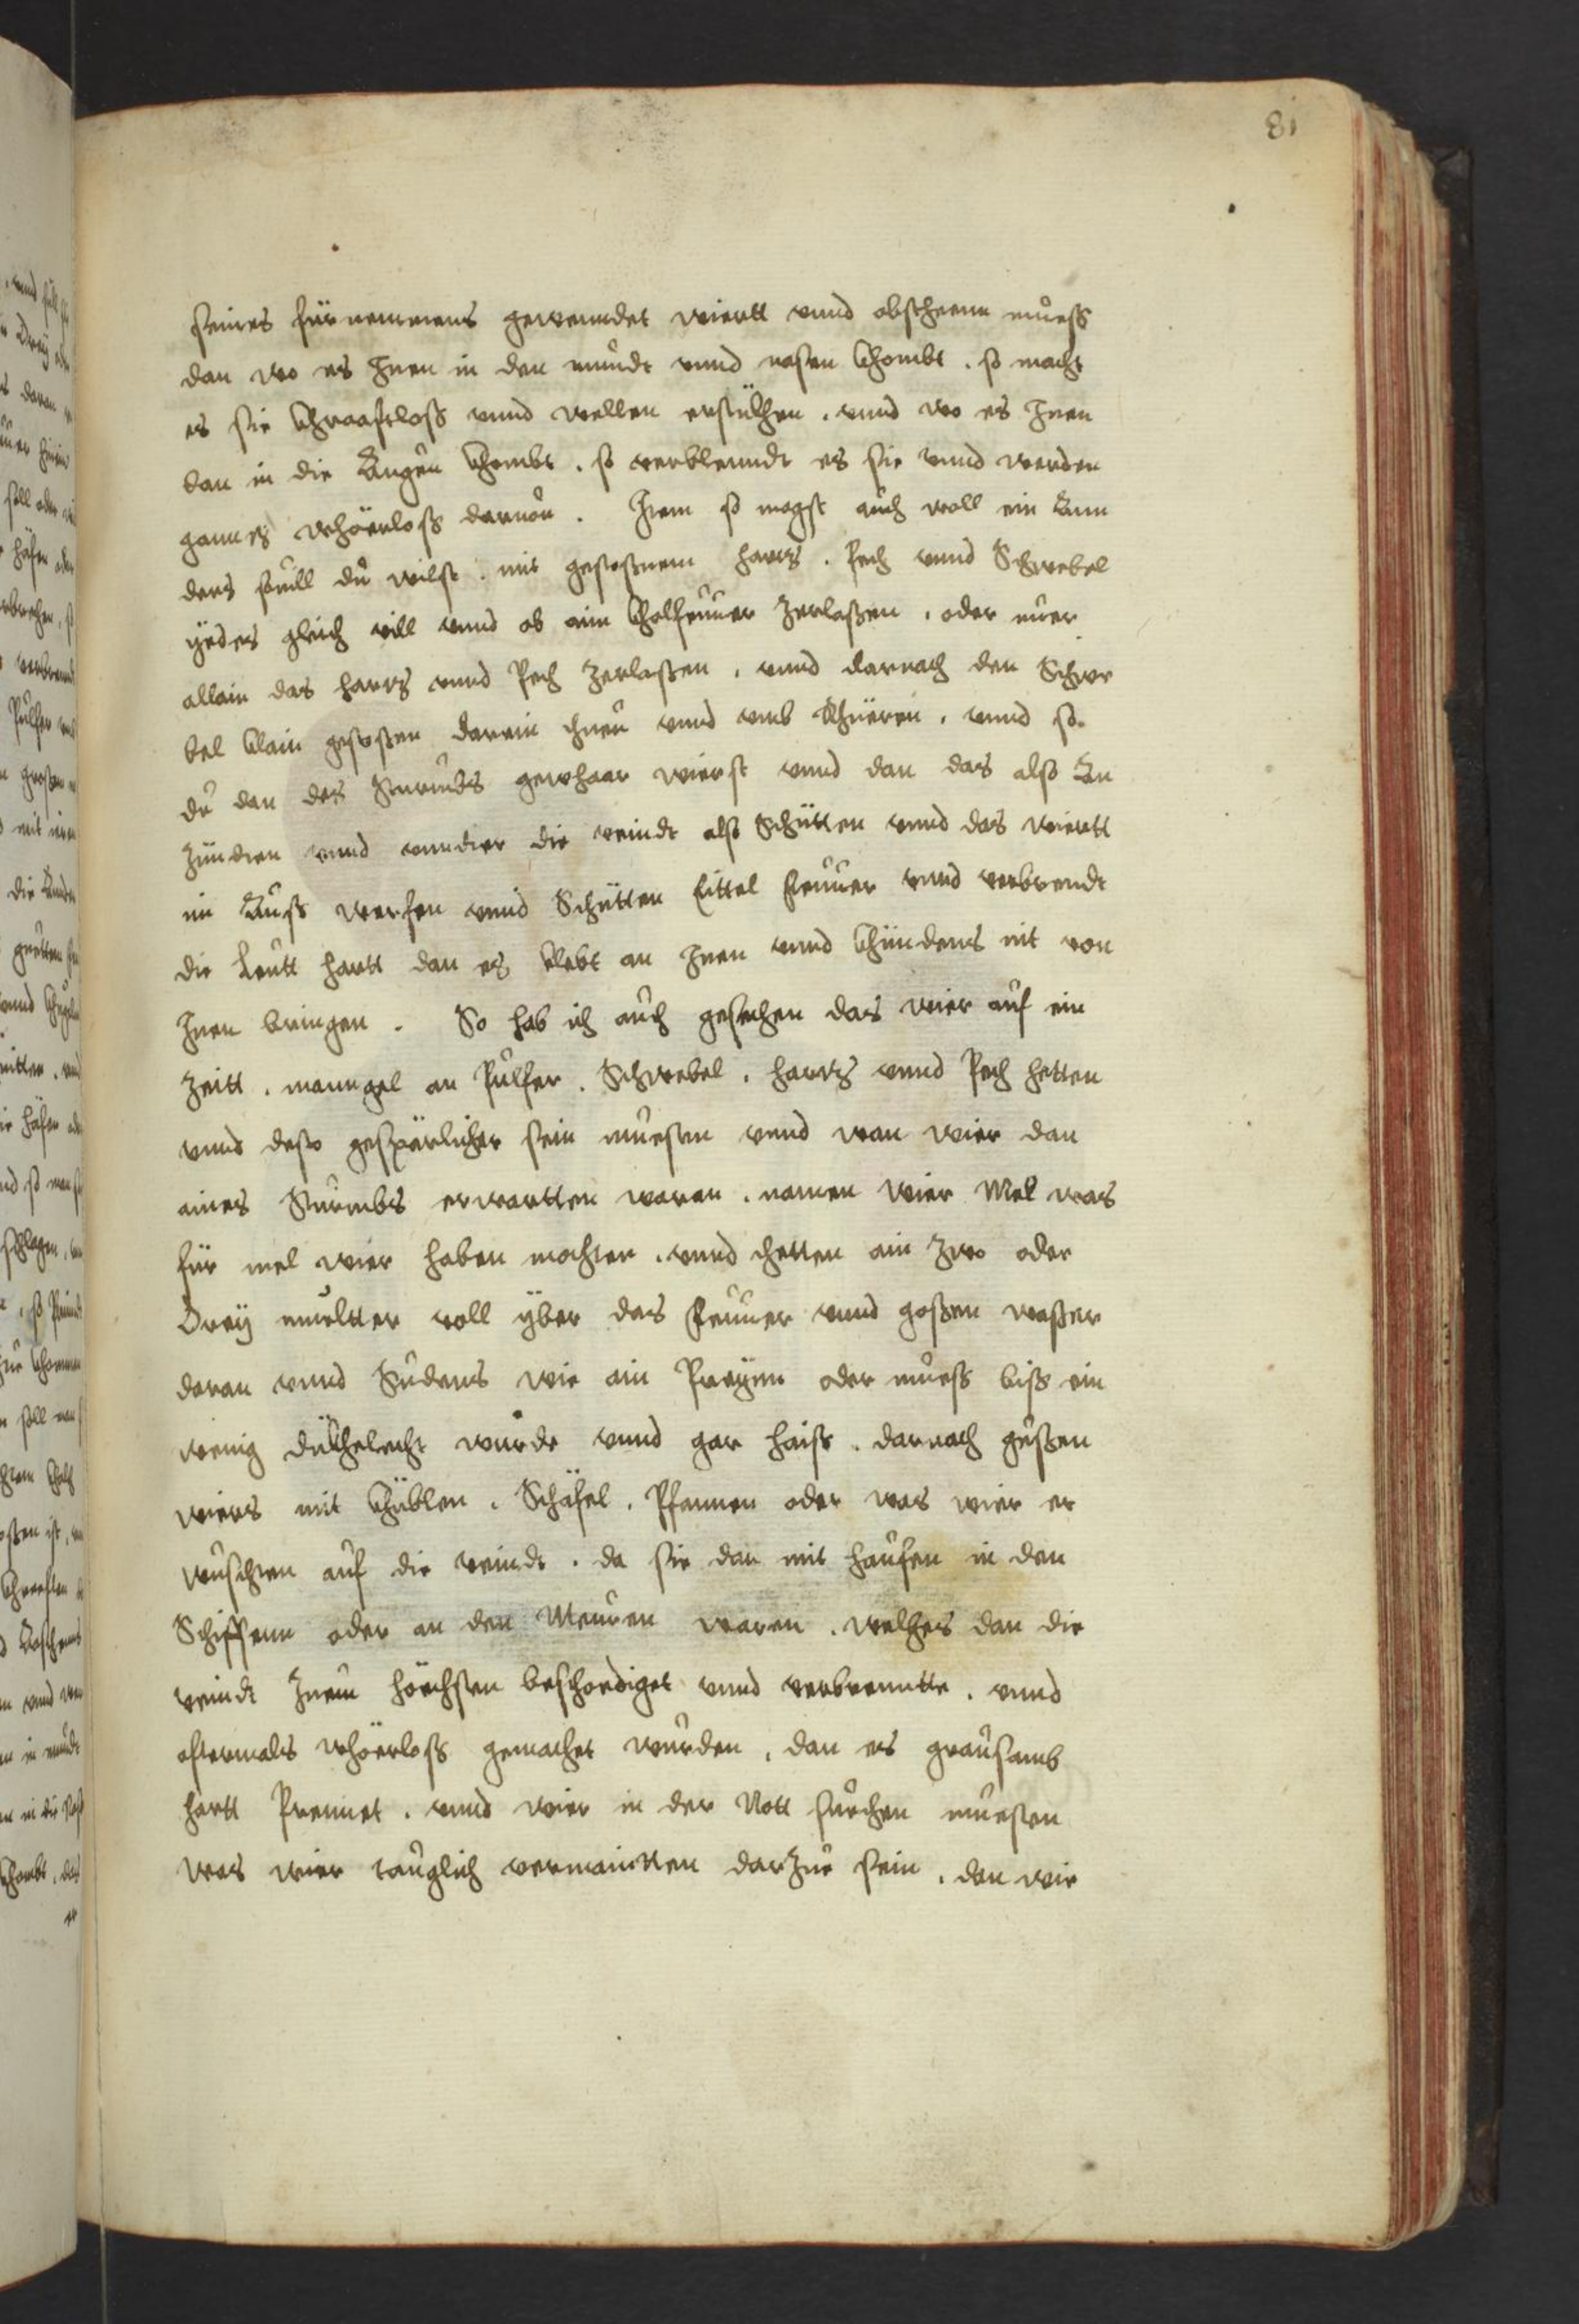 81
seines fürnemmens gewenndet wiertt vnnd abscheenn muess
dan wo es Inen in den mundt vnnd nasen khombt . so macht
es sie khraaftloss vnnd wellen erstickhen . vnnd wo es Inen
dan in die Augen khombt . so verblenndt es sie vnnd werden
gannz whöerloss daruon . Item so magst auch woll ein Ann
ders spill du wilst . mit gestossnem harz . Pech vnnd Schwebel
yedes gleich vill vnnd ob aim kholfeuuer zerlassen . oder nuer
allain das harz vnnd Pech zerlassen . vnnd darnach den Schwe
bel klain gestossen darein thuen vnnd vmb khüeren . vnnd so
du dan des Sturmbs gewhaar wierst vnnd dan das also An
zündten vnnd vnndter die veindt also Schütten vnnd das wiertt
im Auss werfen vnnd Schütten Eittel Feuuer vnnd verbrendt
die Leutt hartt dan es klebt an Inen vnnd khündens nit von
Inen bringen . So hab ich auch gesechen das wier auf ein
zeitt . manngel an Pulfer . Schwebel . harz vnnd Pech hetten
vnnd desto gespärlicher sein muesten vnnd wan wier dan
aines Sturmbs erwartten waren . namen wier Mel was
für mel wier haben mochten . vnnd thetten ain zwo oder
Drey muoltter voll yber das feuuer vnnd gossen wasser
daran vnnd Sudens wie ain Preynn oder muess biss ein
wenig dückhelecht wurde vnnd gar haiss . darnach gussen
wiers mit khüblen . Schäfel . Pfannen oder was wier er
wuschten auf die veindt . da sie dan mit haufen in den
Schiffenn oder an den Meuren waren . welches dan die
veindt zuem höechsten beschoediget vnnd verbrenntte . vnnd
oftermals whöerloss gemachet wurden . dan es grausamb
hartt Prennet . vnnd wier in der Nott suechen muesten
was wier tauglich vermaintten darzue sein . dan wie